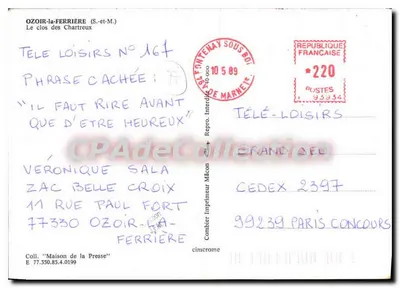 OZOIR-la-FERRIÈRE (S.-et-M.)
Le clos des Chartreux
TELE LOISIRS N° 167
PHRASE CACHÉE :
"IL FAUT RIRE AVANT
QUE D'ETRE HEUREUX"
VÉRONIQUE SALA
ZAC BELLE CROIX
11 RUE PAUL FORT
77330 OZOIR-LA-
FERRIÈRE
Coll. "Maison de la Presse"
E 77.350.85.4.0199
Combier Imprimeur Mâcon
Repro. Interdite
FONTENAY SOUS BOIS
10 5 89
DE MARNE
REPUBLIQUE
FRANÇAISE
*220
POSTES
TÉLÉ-LOISIRS
GRAND DEL
CEDEX 2397
99239 PARIS CONCOURS
CPAdeCollection.com
cim/combier